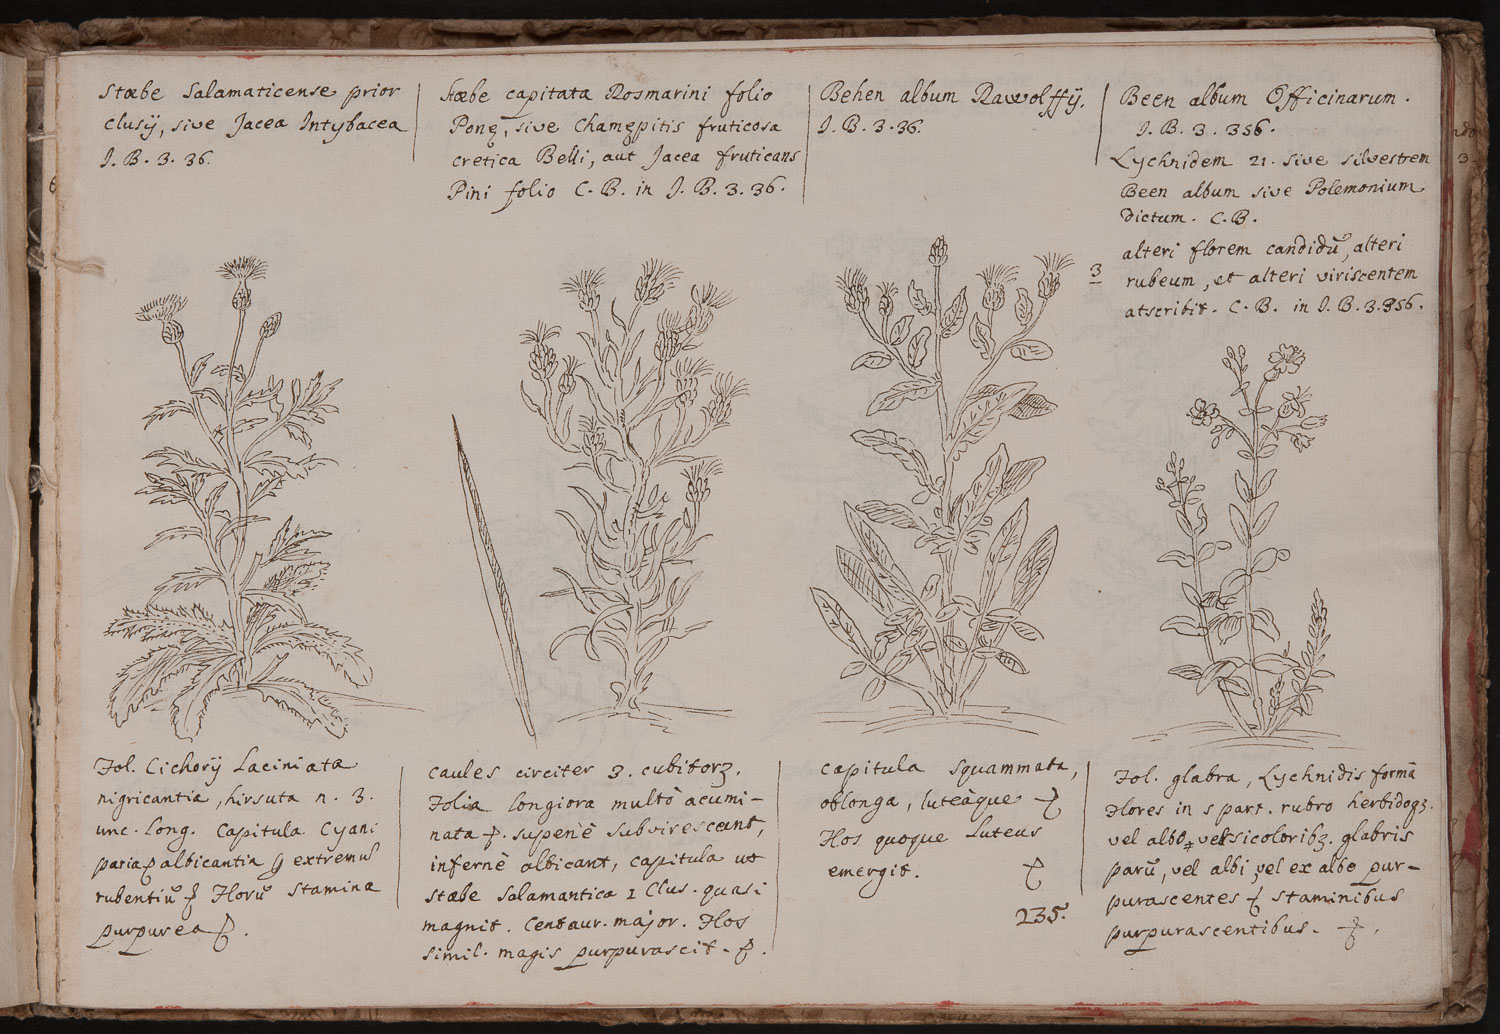 Stœbe Salamaticense prior
Clusij, sive Jacea Intybacea
J. B. 3. 36.
Stœbe capitata Rosmarini folio
Ponę, sive Chamępitis fruticosa
cretica Belli, aut Jacea fruticans
Pini folio C. B. in J. B. 3. 36.
Behen album Rawolffij.
J. B. 3. 36.
Been album Officinarum.
J. B. 3. 356.
Lychnidem 21. sive silvestrem
Been album sive Polemonium
dictum. C. B.
alteri florem candidū, alteri
rubeum, et alteri viriscentem
atscribit. C. B. in J. B. 3. 356.
3
Fol. Cichorij Laciniata
nigricantia, hirsuta n. 3.
unc. Long. Capitula Cyani
paria albicantia extremū
rubentiū Florū Stamina
purpurea
caules circiter 3. cubitorz.
Folia longiora multò acumi-
nata supernè subvirescunt,
infernè albicant, capitula ut
Stœbe Salamantica 1 Clus. quasi
magnit. Centaur. major. Flos
simil. magis purpurascit
capitula squammata,
oblonga, luteàque
Flos quoque Luteus
emergit.
235.
Fol. glabra, Lychnidis formâ
Flores in 5 part. rubro herbidoqz.
vel albo, versicoloribz. glabris
parū, vel albi, vel ex albo pur-
purascentes staminibus
purpurascentibus.